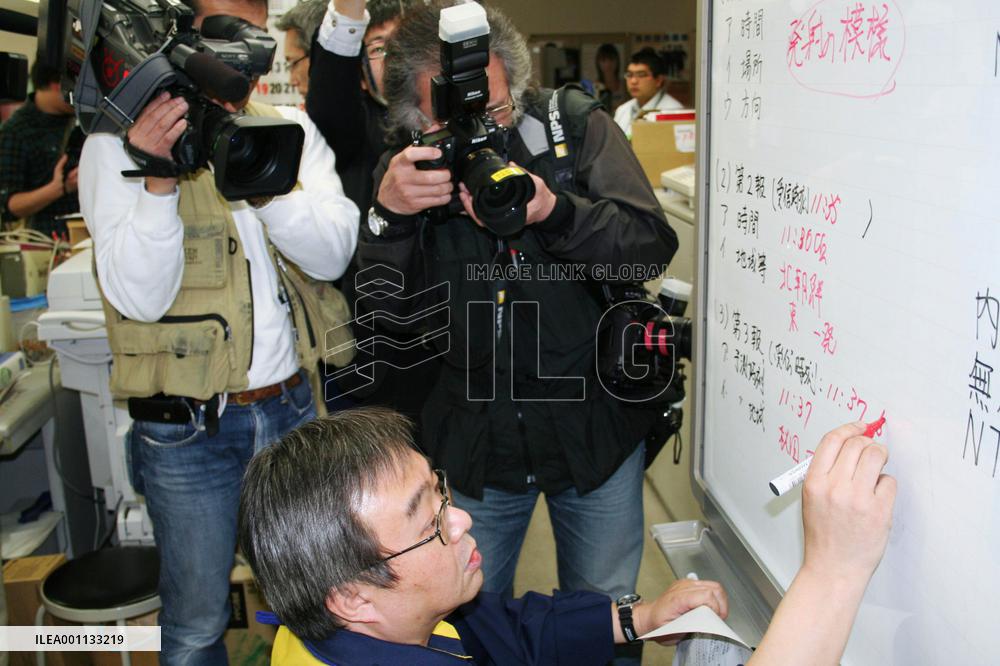 ア 時間
イ 場所
ウ 方向
発射の模様
(2) 第2報 (受信時刻) 11:35
ア 時間 11:30
イ 地域等 北朝鮮
東 一発
3) 第3報 (受信時刻): 11:37
ア 予測時刻 11:37
イ 〃 地域 秋田
内
無
NT
NPS
Nikon
IMAGE LINK GLOBAL
ILG
ILEA001133219